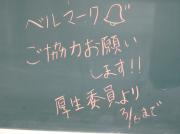 ベルマーク
ご協力お願い
します!!
厚生委員より
3/6まで